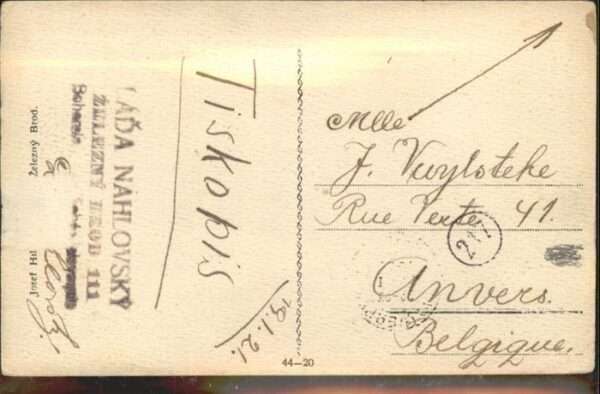 Tiskopis
LÁĎA NÁHLOVSKÝ
ŽELEZNÝ BROD 111
Železný Brod.
Josef Hil
19.1.21.
44—20
Mlle
J. Vuylsteke
Rue Verte 41.
217
Anvers.
Belgique.